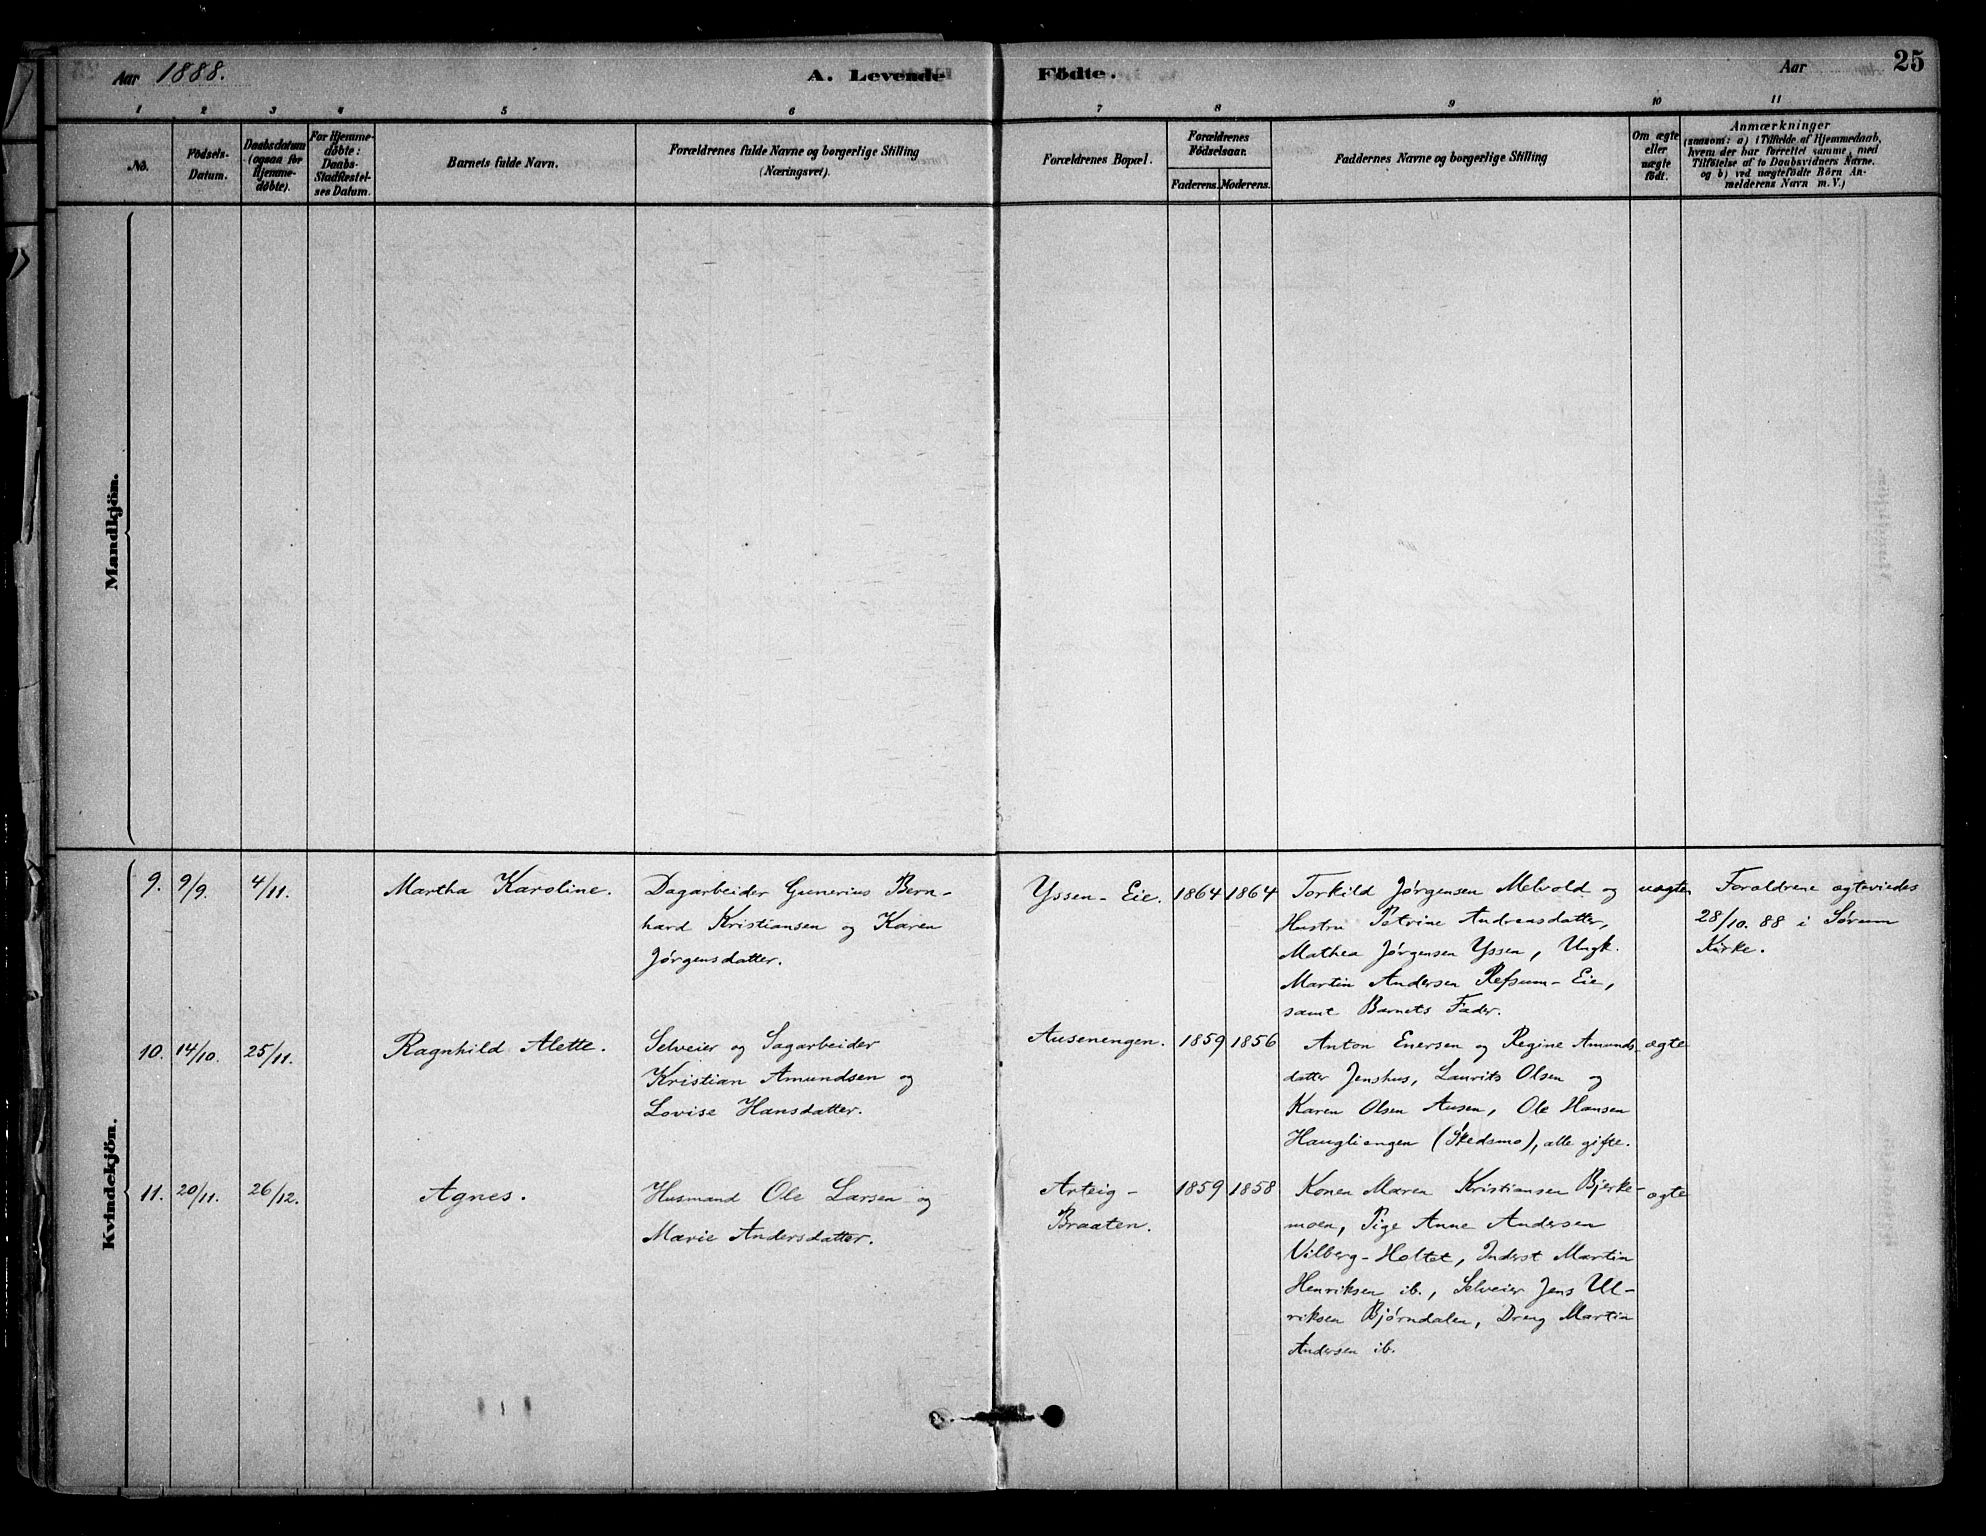 Aar 1888. A. Levende Födte. Aar 25
1 2 3 4 5 6 7 8 9 10 11
No.
Födsels-
Datum.
Daabsdatum
(ogsaa for
Hjemme-
døbte).
For Hjemme-
døbte:
Daabs-
Stadfæstel-
ses Datum.
Barnets fulde Navn.
Forældrenes fulde Navne og borgerlige Stilling
(Næringsvei).
Forældrenes Bopæl.
Forældrenes
Födselsaar.
Faderens. Moderens.
Faddernes Navne og borgerlige Stilling
Om ægte
eller
uægte
født.
Anmærkninger
(saasom: a) i Tilfælde af Hjemmedaab,
hvem der har forrettet samme, med
Tilföielse af to Daabsvidners Navne.
og b) ved uægtefödte Börn An-
melderens Navn m. V.)
Mandkjön.
Kvindekjön.
9. 9/9. 4/11. Martha Karoline.
Dagarbeider Gunerius Bern-
hard Kristiansen og Karen
Jørgensdatter.
Yssen-Eie. 1864 1864
Torkild Jørgensen Melvold og
Hustru Petrine Andreasdatter,
Mathea Jørgensen Yssen, Ungk.
Martin Andersen Refsum-Eie,
samt Barnets Fader.
uægte
Forældrene ægteviedes
28/10. 88 i Sørum
Kirke.
10. 14/10. 25/11. Ragnhild Alette.
Selveier og Sagarbeider
Kristian Amundsen og
Lovise Hansdatter.
Ausenengen. 1859 1856
Anton Enersen og Regine Amunds-
datter Jenshus, Laurits Olsen og
Karen Olsen Ausen, Ole Hansen
Haugliengen (Skedsmo), alle gifte.
ægte
11. 20/11. 26/12. Agnes.
Husmand Ole Larsen og
Marie Andersdatter.
Arteig-
Braaten.
1859 1858
Konen Maren Kristiansen Bjerke-
moen, Pige Anne Andersen
Vilberg-Holtet, Inderst Martin
Henriksen ib., Selveier Jens Ul-
riksen Bjørndalen, Dreng Martin
Andersen ib.
ægte